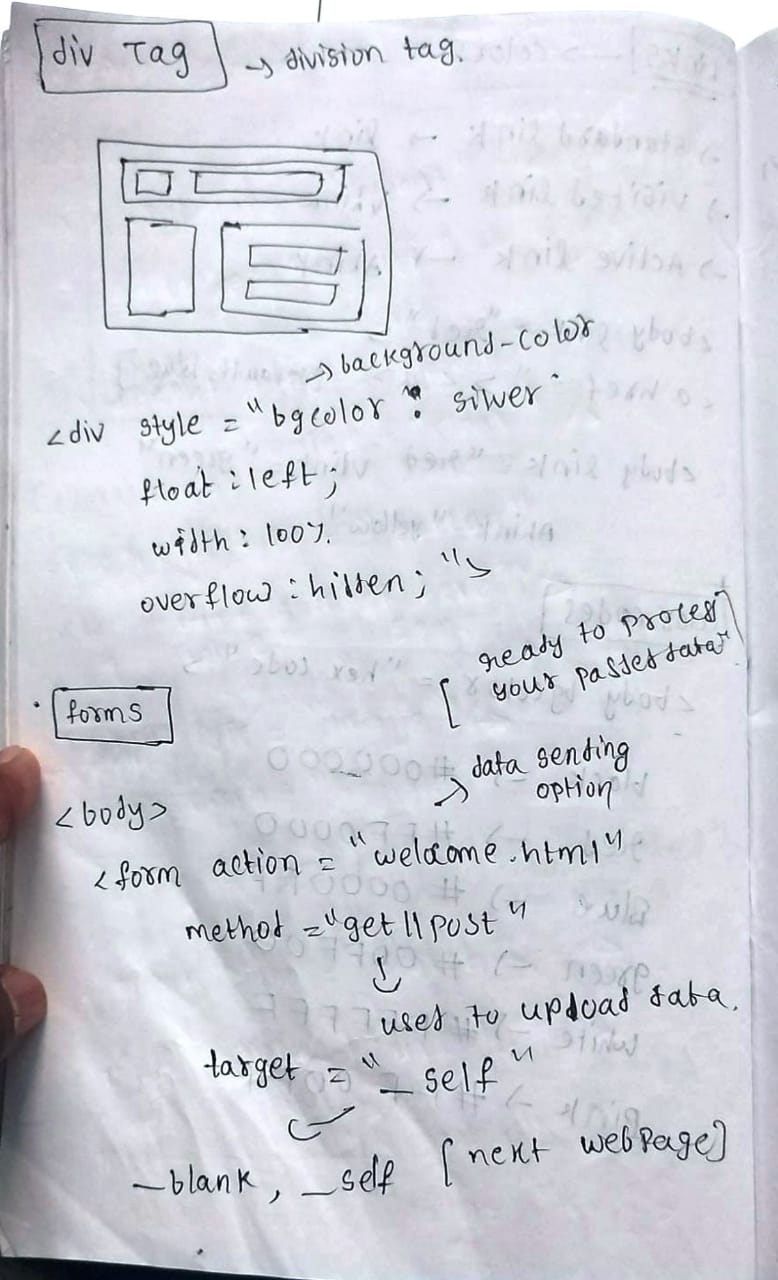 div Tag → division tag.
→ background-color
<div style = "bgcolor : silver"
float : left ;
width : 100%.
overflow : hidden ; ">
[ ready to proces
your passed data" ]
• forms
→ data sending
option
<body>
<form action = "welcome.html"
method = "get || post"
used to upload data.
target = "_self"
_blank, _self [next webpage]